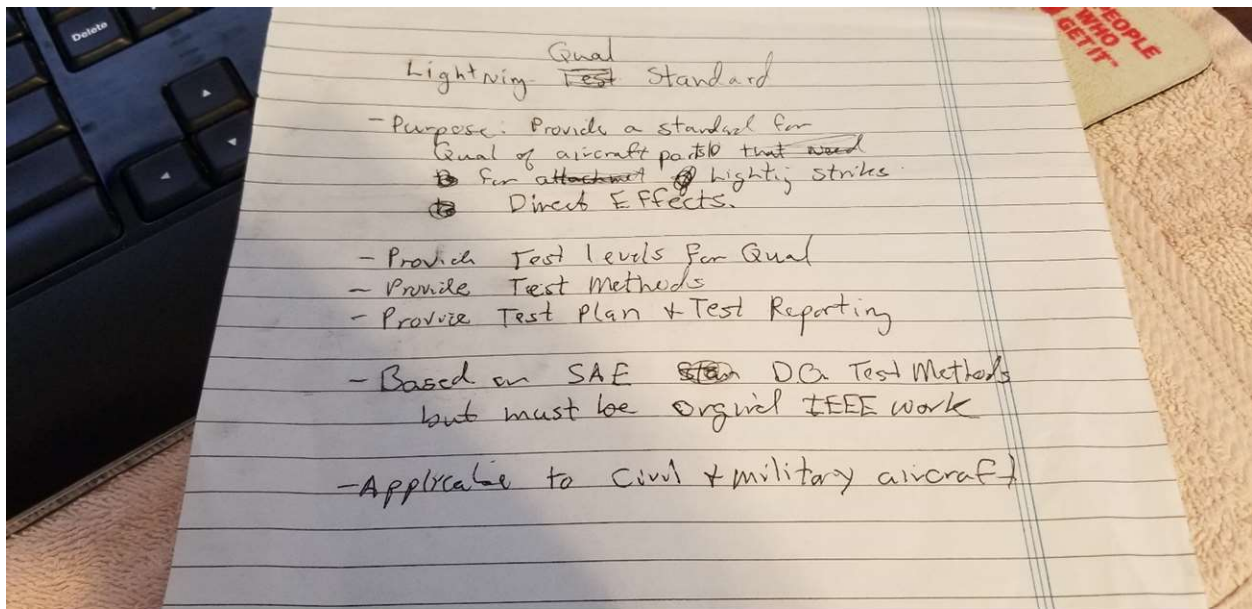 Delete
PEOPLE
WHO
GET IT
Qual
Lightning Test Standard
- Purpose: Provide a standard for
Qual of aircraft parts that need
for attachment Lightig strikes
Direct Effects.
- Provide Test levels for Qual
- Provide Test Methods
- Provide Test Plan + Test Reporting
- Based on SAE Stan DO Test Methods
but must be orginel IEEE work
- Applicable to Civil + military aircraft